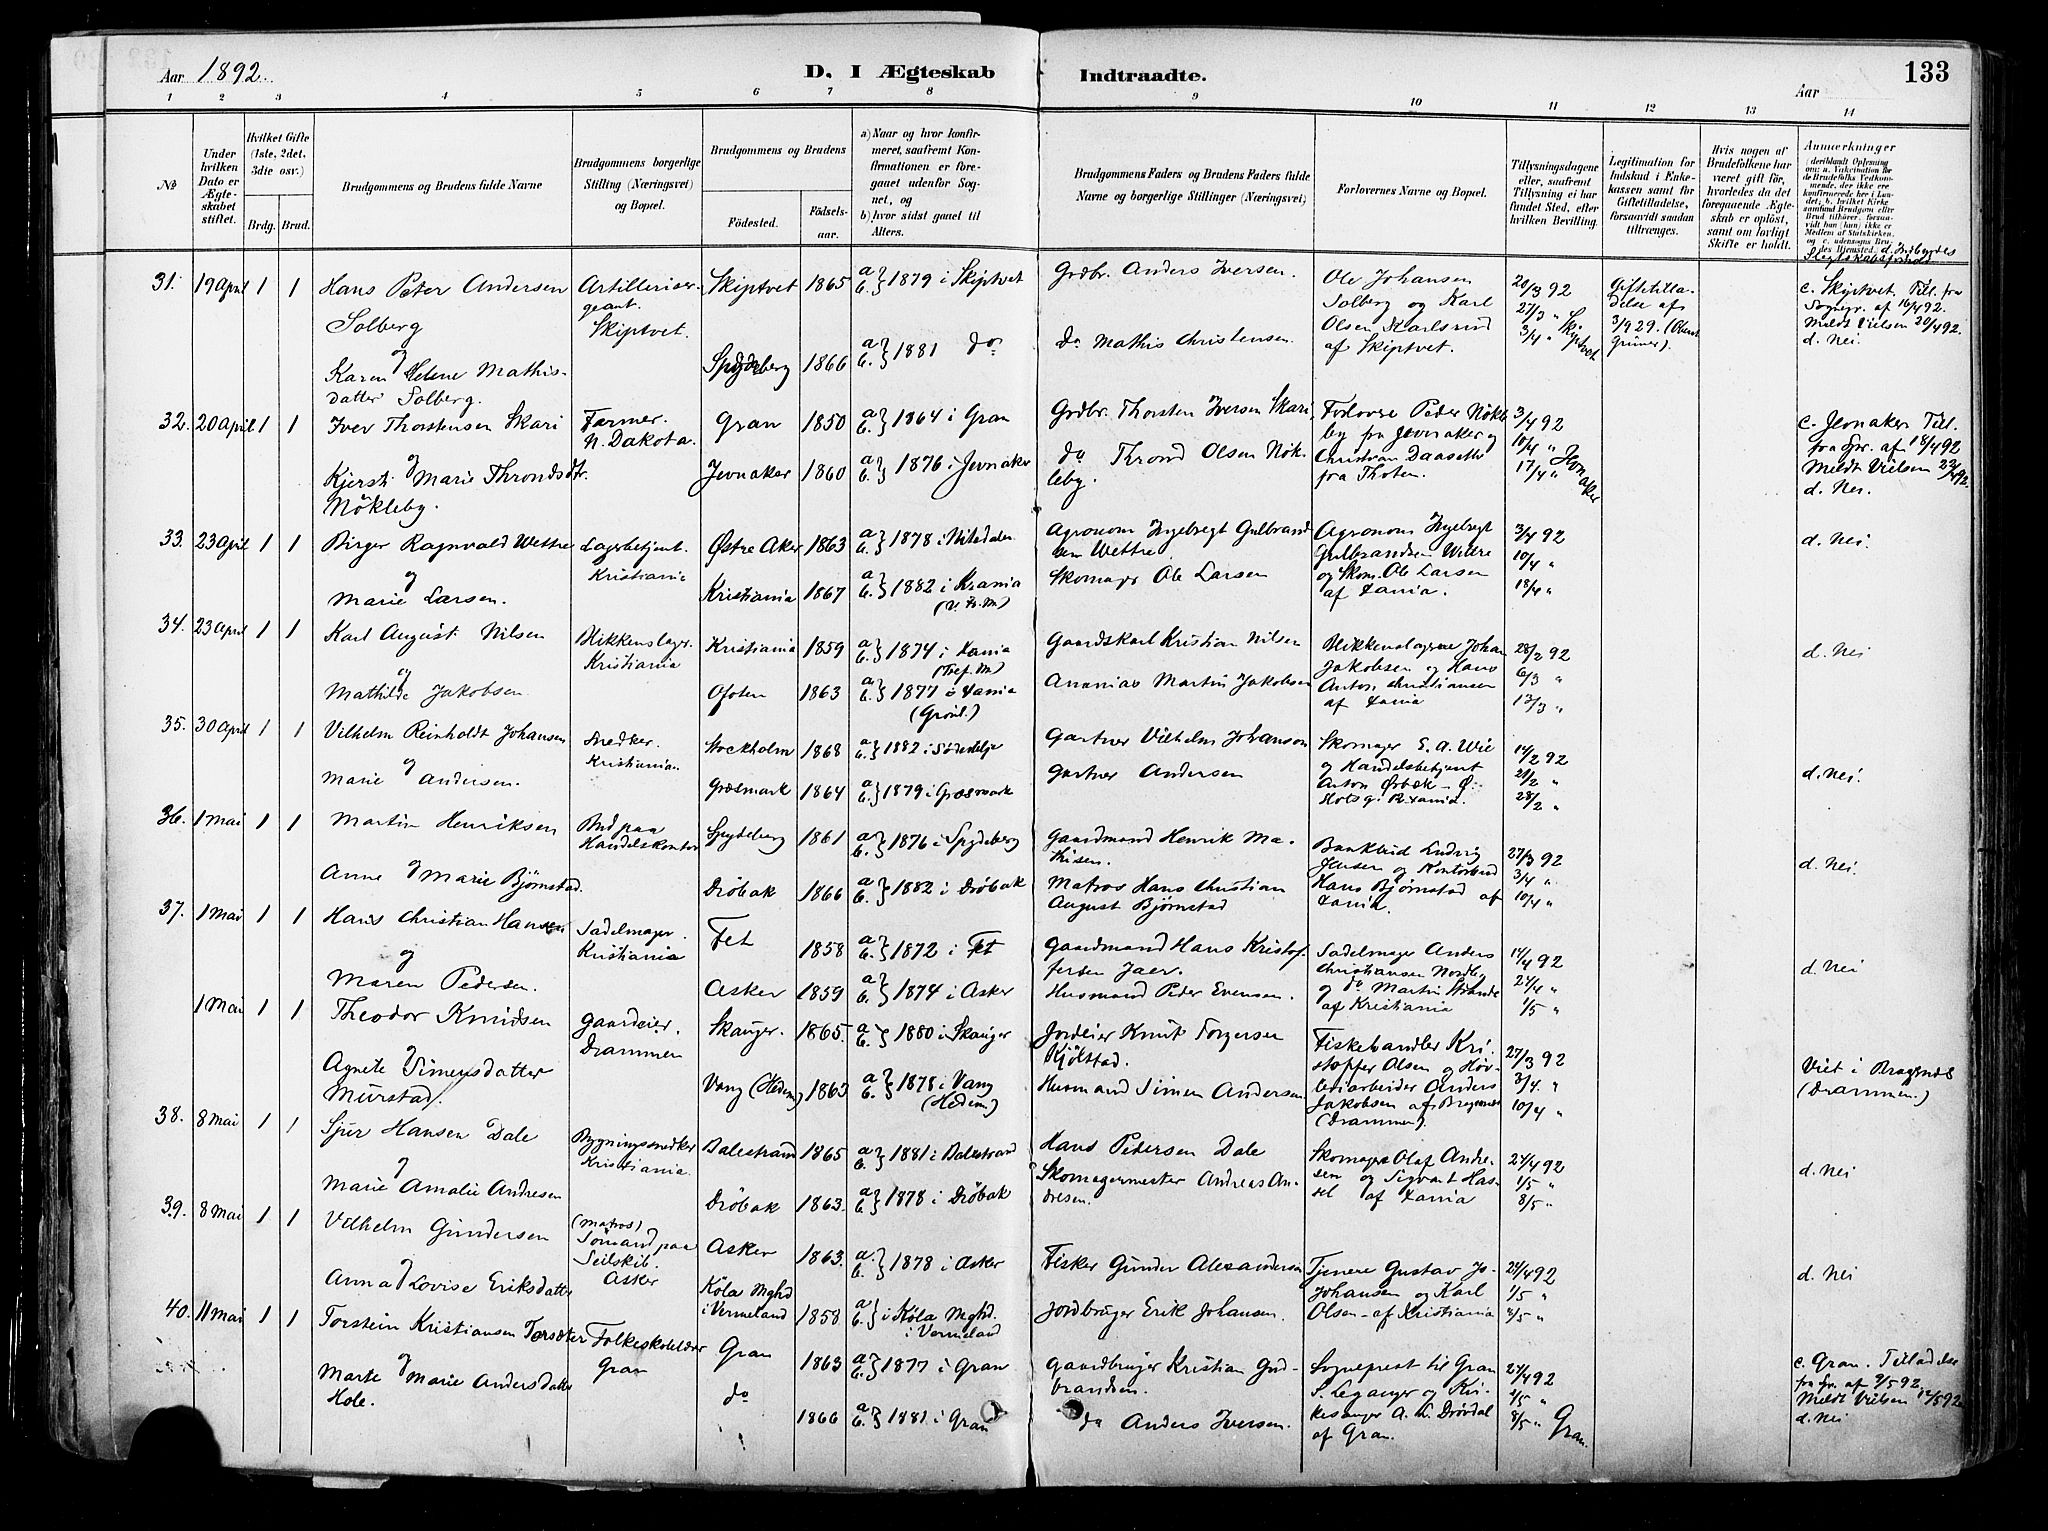 Aar 1892. D. I Ægteskab Indtraadte. Aar 133
1 2 3 4 5 6 7 8 9 10 11 12 13 14
No
Under hvilken Dato er Ægteskabet stiftet.
Hvilket Gifte (1ste, 2det, 3die osv.)
Brdg. Brud.
Brudgommens og Brudens fulde Navne
Brudgommens borgerlige Stilling (Næringsvei) og Bopæl.
Brudgommens og Brudens
Födested. Födselsaar.
a) Naar og hvor konfirmeret, saafremt Konfirmationen er foregaaet udenfor Sognet, og
b) hvor sidst gaaet til Alters.
Brudgommens Faders og Brudens Faders fulde Navne og borgerlige Stillinger (Næringsvei)
Forlovernes Navne og Bopæl.
Tillysningsdagene eller, saafremt Tillysning ei har fundet Sted, efter hvilken Bevilling.
Legitimation for Indskud i Enkekassen samt for Giftetilladelse, forsaavidt saadan tiltrænges.
Hvis nogen af Brudefolkene har været gift før, hvorledes da det foregaaende Ægteskab er oplöst, samt om lovligt Skifte er holdt.
Anmærkninger
31. 19 April 1 1 Hans Peter Andersen Solberg
Artillerisergeant. Skiptvet.
Skiptvet 1865 a b } 1879 i Skiptvet
Grdbr. Anders Iversen.
Ole Johansen Solberg og Karl Olsen Karlsrud af Skiptvet.
20/3 92 27/3 " 3/4 " Skiptvet
Giftetilladelse af
c. Skiptvet, Till. fra Sognepr. af 16/4 92. Meldt Vielsen 20/4 92. d. Nei.
og Karen Helene Mathisdatter Solberg.
Spydeberg 1866 a b } 1881 do
do Mathis Christensen.
32. 20 April 1 1 Iver Thorstensen Skari
Farmer. N. Dakota.
Gran 1850 a b } 1864 i Gran
Grdbr. Thorsten Iversen Skari,
Forlovere Peder Nökleby fra Jevnaker og Christian fra Thoten.
3/4 92 10/4 " 17/4 " Jevnaker
c. Jevnaker Till. fra Spr. af 18/4 92 Meldt Vielsen d. Nei.
og Kjersti Marie Throndsdtr. Nökleby.
Jevnaker 1860 a b } 1876 i Jevnaker
do Thrond Olsen Nökleby.
33. 23 April 1 1 Birger Ragnvald Wettre
Lagerbetjent. Kristiania
Østre Aker 1863 a b } 1878 i Nitedalen
Agronom Ingebregt Gulbrandsen Wettre
Agronom Ingebregt Gulbrandsen Wettre og Skom. Ole Larsen af Xania.
3/4 92 10/4 " 18/4 "
d. Nei.
og Marie Larsen.
Kristiania 1867 a b } 1882 i Krania
Skomager Ole Larsen
34. 23 April 1 1 Karl August Nilsen
Blikkenslager. Kristiania
Kristiania 1859 a b } 1874 i Xania (Tref. M)
Gaardskarl Kristian Nilsen
Blikkenslagerne Johan Jakobsen og Hans Anton Christiansen af Xania
28/2 92 6/3 " 13/3 "
d. Nei
og Mathilde Jakobsen
Ofoten 1863 a b } 1877 i Xania (Grönl.)
Ananias Martin Jakobsen
35. 30 April 1 1 Vilhelm Reinholdt Johansen
Snedker. Kristiania.
Stockholm 1868 a b } 1882 i Södertelje
Gartner Vilhelm Johanson
Skomager E. A. Wie og Handelsbetjent Anton Ørbæk
14/2 92 21/2 " 28/2 "
d. Nei.
og Marie Andersen.
Græsmark 1864 a b } 1879 i Græsmark
Gartner Andersen
36. 1 Mai 1 1 Martin Henriksen
Bud paa Handelskontor
Spydeberg 1861 a b } 1876 i Spydeberg
Gaardmand Henrik
Bankbud Ludvig Jensen og Kontorbud Hans Bjørnstad af Xania.
27/3 92 3/4 " 10/4 "
d. Nei.
og Anne Marie Bjørnstad.
Drøbak 1866 a b } 1882 i Drøbak
Matros Hans Christian August Bjørnstad
37. 1 Mai 1 1 Hans Christian Hansen
Sadelmager. Kristiania
Fet 1858 a b } 1872 i Fet
Gaardmand Hans Kristoffersen Jaer.
Sadelmager Anders Christiansen Nordby og do Martin af Kristiania
24/4 " 1/5 "
d. Nei
og Maren Pedersen.
Asker 1859 a b } 1874 i Asker
Husmand Peder Evensen.
1 Mai 1 1 Theodor Knudsen
Gaardeier. Drammen
Skauger. 1865. a b } 1880 i Skauger
Jordeier Knut Torgersen Kjölstad.
Fiskehandler Kristoffer Olsen og Anders Jakobsen af Bragernes (Drammen).
27/3 92 3/4. " 10/4 "
Viet i Bragernes (Drammen.)
og Agnete Simensdatter Murstad.
Vang (Hedem) 1863 a b } 1878 i Vang (Hedem.)
Husmand Simen Andersen
38. 8 Mai 1 1 Sjur Hansen Dale
Bygningssnedker Kristiania.
Balestrand 1865 a b } 1881 i Balestrand
Hans Pedersen Dale
Skomager Olaf Andresen og Sigvart Hassel af Xania
24/4 92 1/5 " 8/5 "
d. Nei
og Marie Amalie Andresen
Drøbak 1863. a b } 1878 i Drøbak
Skomagermester Andreas Andresen.
39. 8 Mai 1 1 Vilhelm Gundersen
(Matros) Sömand paa Seilskib. Asker
Asker 1863. a b } 1878 i Asker
Fisker Gunder Alexandersen
Tjenere Gustav Johansen og Karl Olsen - af Kristiania
24/4 92 1/5 " 8/5 "
d. Nei
og Anna Lovise Eriksdatter
Köla Mghd i Vermeland 1858 a b } i Köla Mghd. i Vermeland
Jordbruger Erik Johansen.
40. 11 Mai 1 1 Torstein Kristiansen
Folkeskolelærer Gran
Gran 1863 a b } 1877 i Gran
Gaardbruger Kristian Gudbrandsen.
Sogneprest til Gran S. Leganger og Kirkesanger A. L. Drövdal af Gran.
24/4 92 1/5 " 8/5 " Gran.
c. Gran. Tilladelse fra Spr. af 9/5 92. Meldt Vielsen 12/5 92 d. Nei
og Marte Marie Andersdatter Hole.
do 1866 a b } 1881 i Gran
do Anders Iversen.